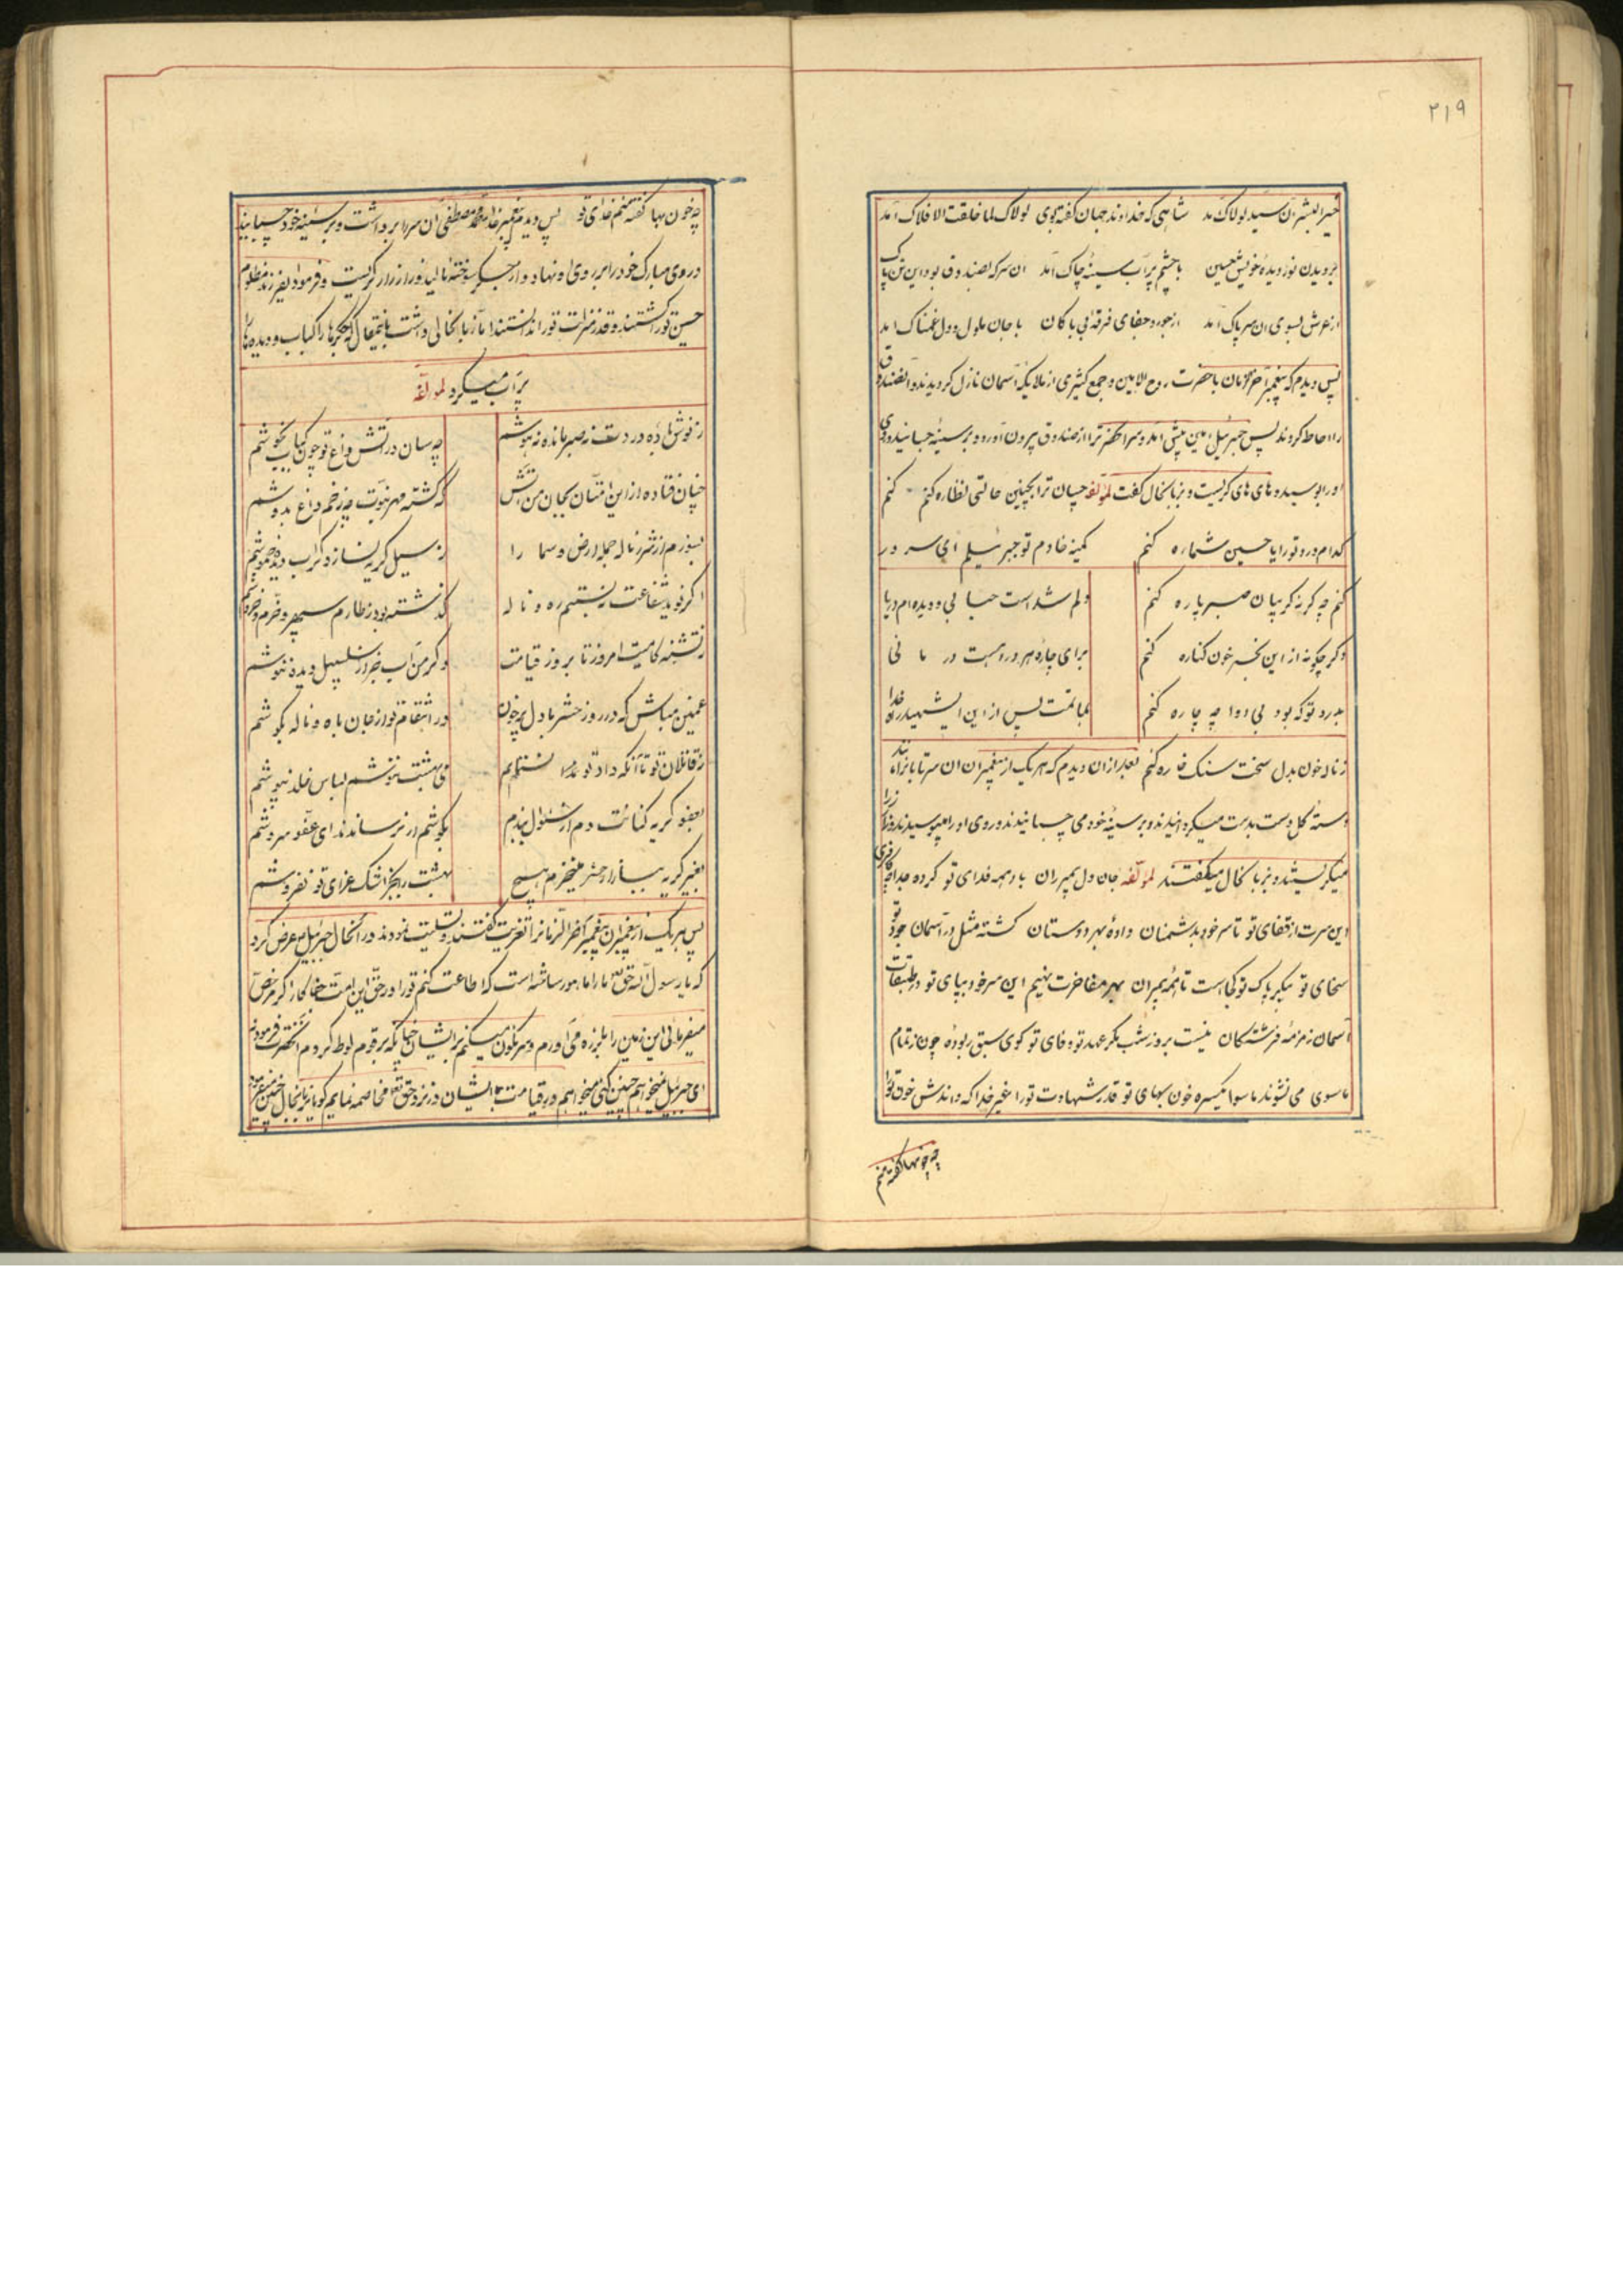 ۲۱۹
خیرالبشر آن سید لولاک آمد شاهی که خداوند جهان گفته توی لولاک لما خلقت الافلاک آمد
بر دیدن نور دیده خویش حسین با چشم پر آب سینه چاک آمد آن سر که بصندوق بود این تن پاک
از عرش بسوی آن سر پاک آمد از جور و جفای فرقه بی باکان با جان ملول و دل غمناک آمد
پس دیدم که پیغمبر آخرالزمان با حضرت روح الامین و جمع کثیری از ملایکه آسمان نازل گردیدند و آنصندوق
را احاطه کردند پس جبرئیل امین پیش آمد و سر آنحضرت را از صندوق بیرون آورد و بر سینه چسبانید و روی
او را بوسید و های های گریست و بزبانحال گفت لمؤلفه چسان ترا بچنین حالتی نظاره کنم
کدام درد تو را یا حسین شماره کنم کمینه خادم تو جبرئیلم ای سرور
کنم چه گر نه گریبان صبر پاره کنم دلم شد است حبابی و دیده ام دریا
دگر چگونه از این بحر خون کناره کنم برای چاره هر درد هست درمانی
بدرد تو که بود بی دوا چه چاره کنم بماتمت پس از این ای شهید راه خدا
ز ناله خون بدل سخت سنگ خاره کنم بعد از آن دیدم که هر یک از پیغمبران آن سر تابانرا مانند
دسته گل دست بدست میگردانیدند و بر سینه خود می چسبانیدند و روی او را میبوسیدند و
میگریستند و بزبانحال میگفتند لمؤلفه جان و دل پیمبران باد همه فدای تو کرده جدا چه کافری
این سرت از قفای تو تا سر خود بدشمنان داده بهر دوستان گشته مثل در آسمان جود تو
سخای تو پیکر پاک تو کجاست تا همه پیمبران بهر مفاخرت نهیم این سر خود بپای تو در طبقات
آسمان زمزمه فرشتگان نیست بروز و شب مگر عهد تو وفای تو گوی سبق ربوده چون ز تمام
ماسوی می نشوند ماسوا یکسره خون بهای تو قدر شهادت تو را غیر خدا که داندش خون تو را
چه خونبها گفته منم
چه خون بها گفته منم خدای تو پس دیدم پیغمبر خدا محمد مصطفی آن سر را برداشت و بر سینه خود چسپانید
و روی مبارک خود را بر روی او نهاد و از جگر سوخته نالید و زار زار گریست و فرمود ای فرزند مظلوم
حسین تو را کشتند و قدر و منزلت تو را ندانستند آیا زبانحالی داشت باینمقال که جگرها را کباب و دیده ها را
پر آب میکرد لمؤلفه
چه سان در آتش داغ تو چون کباب نجوشم
چنان فتاده از این امتان بجان من آتش که گشته مهر نبوت چو زخم داغ بدوشم
بسوزم از شرر ناله جمله ارض و سما را ز سیل گریه نسازد گر آب دیده خموشم
اگر نوید شفاعت نبستیم ره و ناله گذشته بود ز طارم سپهر و خروشم
ز تشنه کامیت امروز تا بروز قیامت دگر من آب بجز از سلسبیل دیده ننوشم
غمین مباش که در روز حشر با دل پر خون در انتقام تو از جان باه و ناله بکوشم
ز قاتلان تو تا آنکه داد تو نستانم می بهشت ننوشم لباس خلد نپوشم
بعفو گریه کنانت دم از سئوال نبندم بگوشم ار نرساند ندای عفو سروشم
بغیر گریه ببازار حشر مینخرم هیچ بهشت را بجز اشک عزای تو نفروشم
پس هر یک از پیغمبران پیغمبر آخرالزمانرا تعزیت گفتند و تسلیت نمودند در آنحال جبرئیل عرض کرد
که یا رسول الله حق تعالی ما را مامور ساخته است که اطاعت کنم تو را در حق این امت جفاکار اگر مرخص
میفرمائی این زمین را بلرزه می آورم و سرنگون میکنم بر ایشان چنانکه بر قوم لوط کردم آنحضرت فرمودند
ای جبرئیل نمیخواهم چنین کنی میخواهم در قیامت با ایشان در نزد حق تعالی مخاصمه نمایم گویا بزبانحال چنین میفرمود